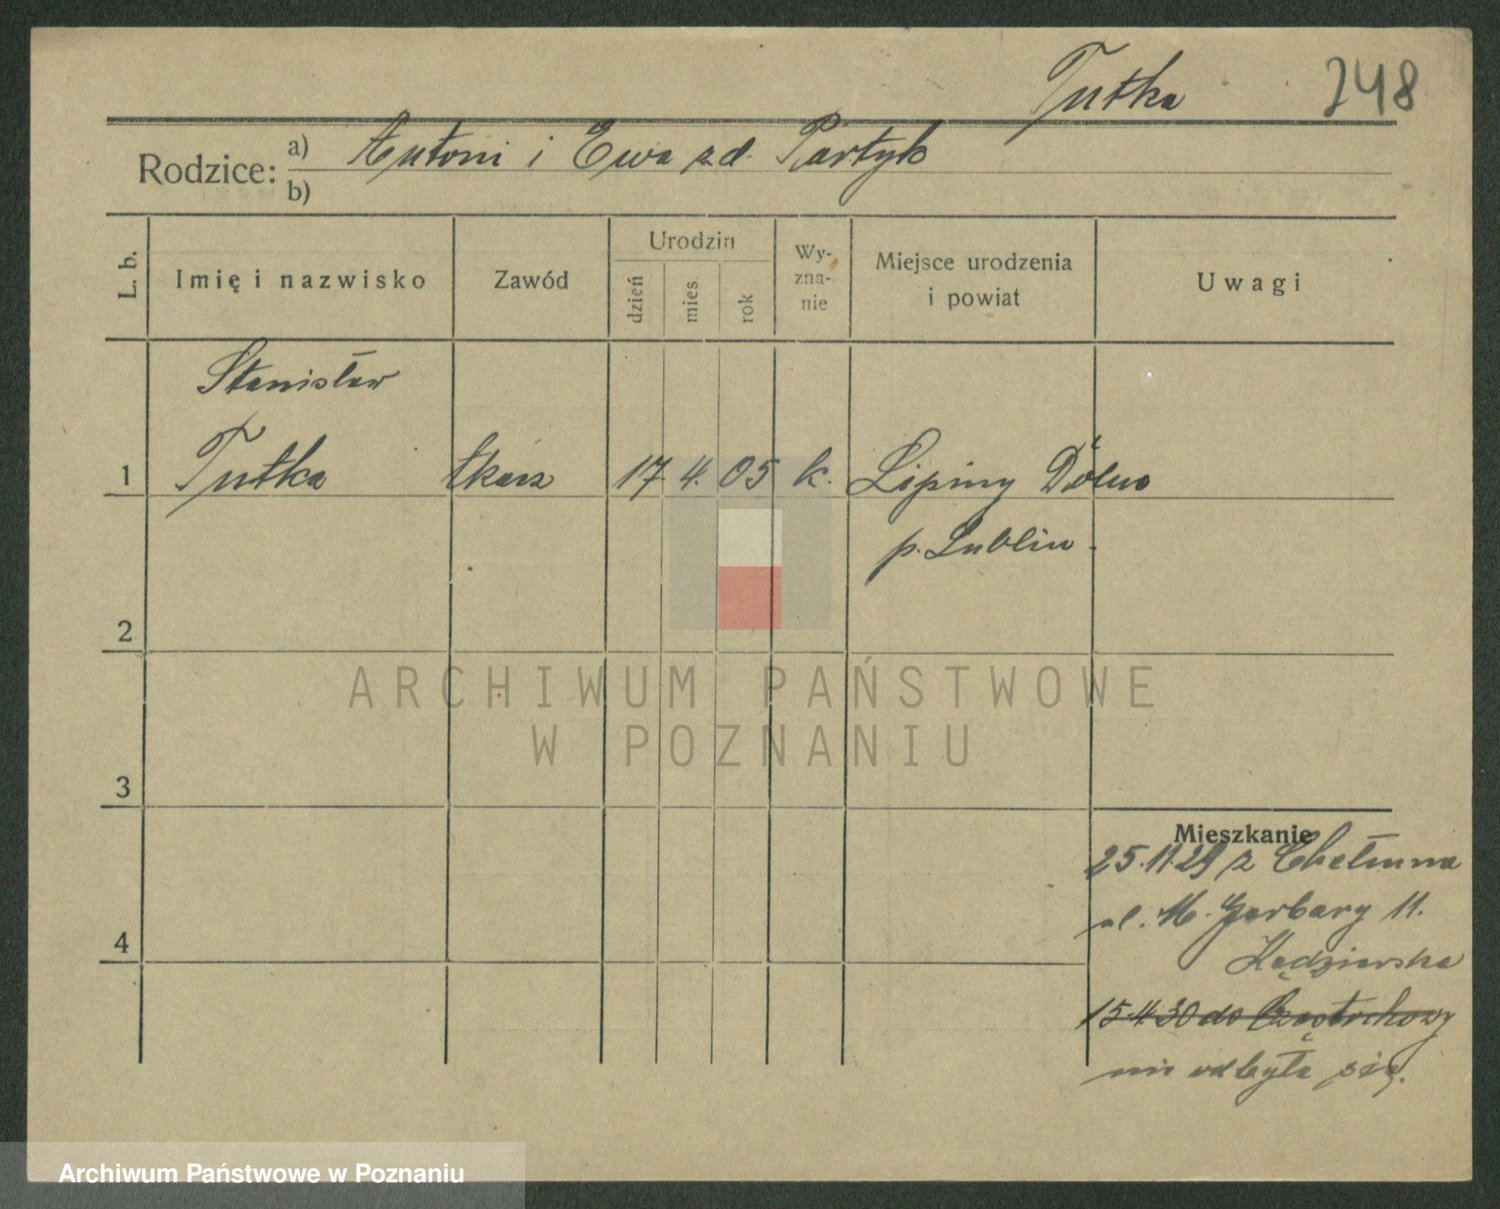 Tutka 248
Rodzice: a) Antoni i Ewa z d. Partyk
b)
L. b. Imię i nazwisko Zawód Urodzin dzień mies. rok Wyznanie Miejsce urodzenia i powiat Uwagi
Stanisław
1 Tutka tkacz 17 4. 05 k. Lipiny Dolne
p. Lublin.
2
ARCHIWUM PAŃSTWOWE
W POZNANIU
3
Mieszkanie
25.11.29 z Chełmna
ul. M. Garbary 11.
4
Kędzierska
15.4.30 do Częstochowy
nie odbyła się.
Archiwum Państwowe w Poznaniu